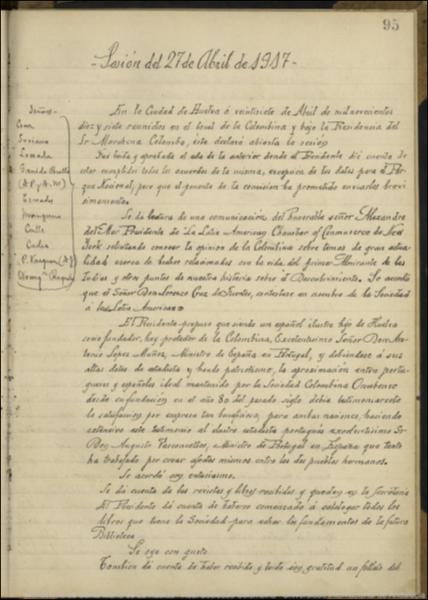 95
-Sesión del 27 de Abril de 1917-
Señores
Cruz
Soriano
Terrades
Calle
Cádiz
P. Vazquez (A)
En la Ciudad de Huelva á veintisiete de Abril de mil novecientos
diez y siete reunidos en el local de la Colombina y bajo la Presidencia del
Sr Marchena Colombo, éste declaró abierta la sesión
Fué leida y aprobada el acta de la anterior donde el Presidente dió cuenta de
estar cumplidos todos los acuerdos de la misma, excepción de los datos para el Par-
que Nacional, pero que el gerente de la comisión ha prometido enviarlos breví-
simamente.
Se da lectura de una comunicación del honorable señor Alexandre
del Mar Presidente de La Latin American Chamber of Commerce de New
York solicitando conocer la opinion de la Colombina sobre temas de gran actua-
lidad acerca de hechos relacionados con la vida del primer Almirante de las
Indias y otros puntos de nuestra historia sobre el Descubrimiento. Se acordó
que el Señor Don Lorenzo Cruz de Fuentes, contestase en nombre de la Sociedad
á la Latin American
El Presidente propuso que siendo un español ilustre hijo de Huelva
como fundador, hoy protector de la Colombina, Excelentísimo Señor Don An-
tonio Lopez Muñoz, Ministro de España en Portugal, y debiendose á sus
altas dotes de estadista y hondo patriotismo, la aproximación entre portu-
gueses y españoles ideal mantenido por la Sociedad Colombina Onubense
desde su fundación en el año 80 del pasado siglo debia testimoniarsele
la satisfacción por empresa tan beneficiosa, para ambas naciones, haciendo
extensivo este testimonio al ilustre estadista portugués excelentísimo Sr
Don Augusto Vasconcellos, Ministro de Portugal en España que tanto
ha trabajado por crear afectos mismos entre los dos pueblos hermanos.
Se acordó con entusiasmo.
Se da cuenta de las revistas y libros recibidos y quedan en la Secretaría
El Presidente dá cuenta de haberse comenzado á catalogar todos los
libros que tiene la Sociedad para echar los fundamentos de la futura
Biblioteca
Se oye con gusto
Tambien dá cuenta de haber recibido y leido con gratitud un folleto del